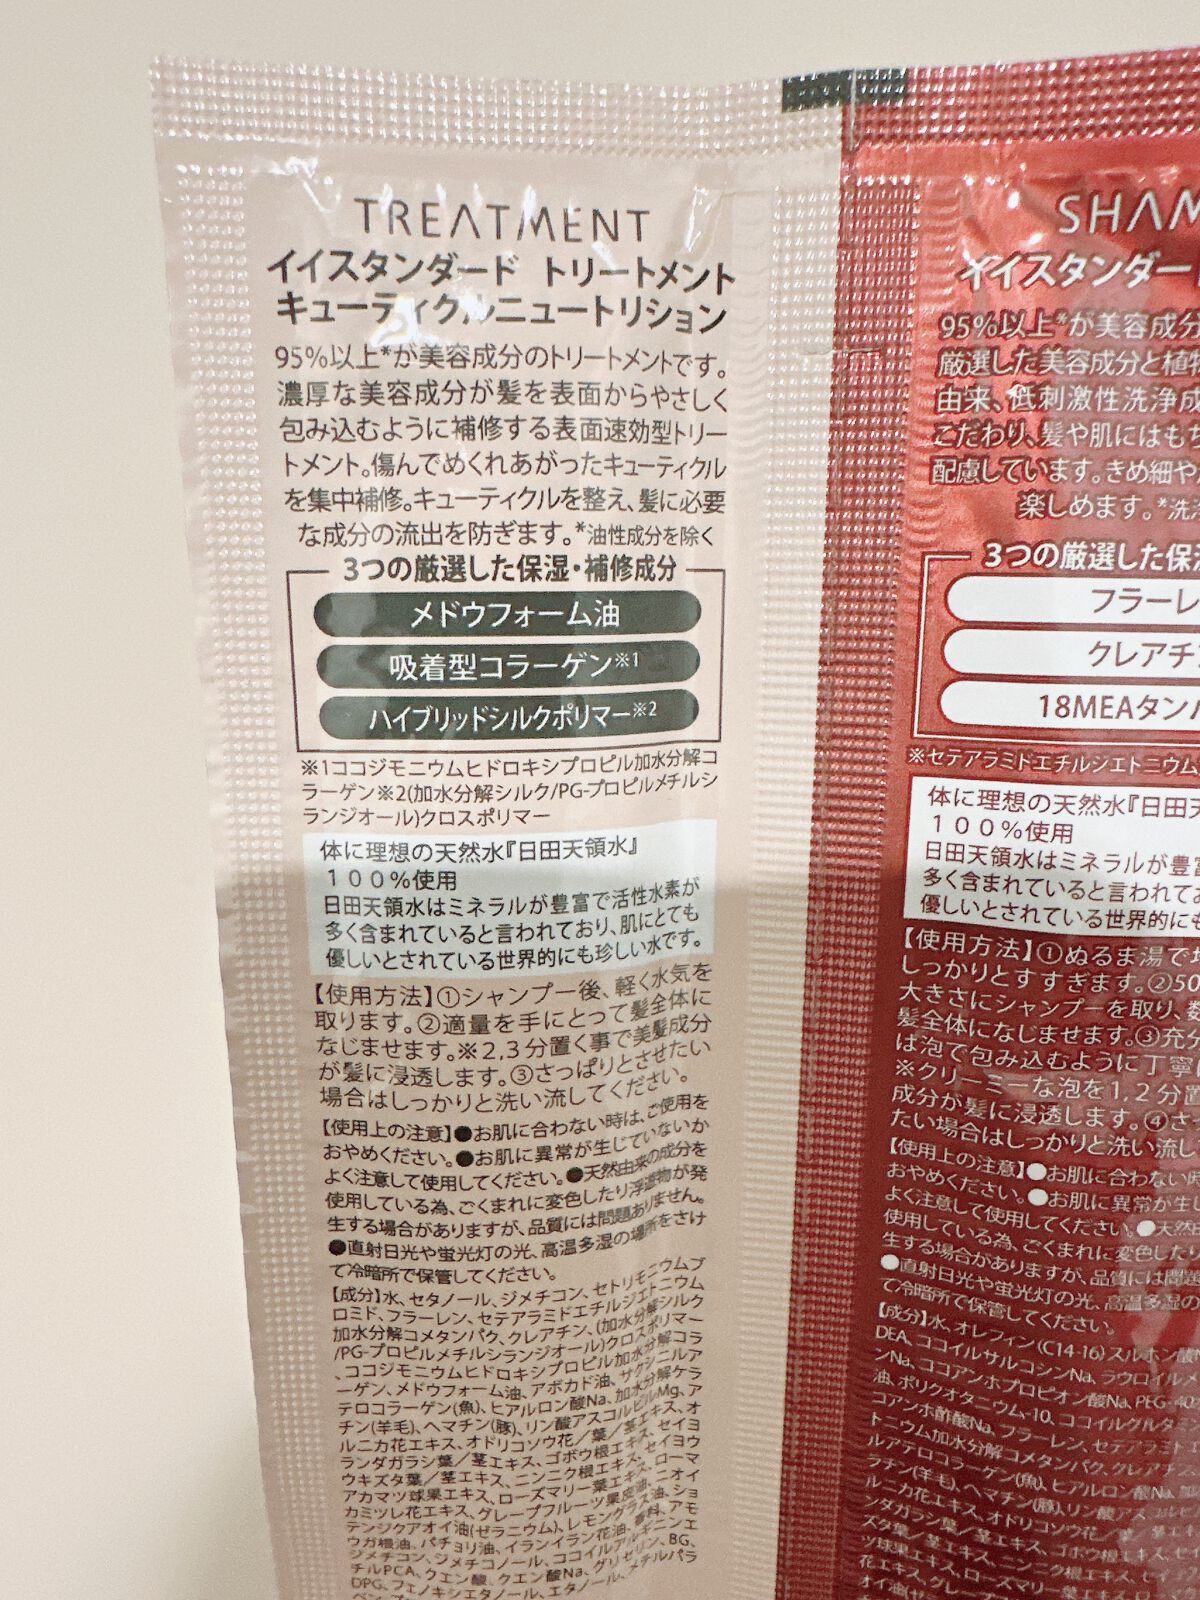 TREATMENT
イイスタンダード トリートメント
キューティクルニュートリション
95%以上*が美容成分のトリートメントです。
濃厚な美容成分が髪を表面からやさしく
包み込むように補修する表面速効型トリー
トメント。傷んでめくれあがったキューティクル
を集中補修。キューティクルを整え、髪に必要
な成分の流出を防ぎます。*油性成分を除く
3つの厳選した保湿・補修成分
メドウフォーム油
吸着型コラーゲン※1
ハイブリッドシルクポリマー※2
※1ココジモニウムヒドロキシプロピル加水分解コ
ラーゲン※2(加水分解シルク/PG-プロピルメチルシ
ランジオール)クロスポリマー
体に理想の天然水『日田天領水』
100%使用
日田天領水はミネラルが豊富で活性水素が
多く含まれていると言われており、肌にとても
優しいとされている世界的にも珍しい水です。
【使用方法】①シャンプー後、軽く水気を
取ります。②適量を手にとって髪全体に
なじませます。※2,3分置く事で美髪成分
が髪に浸透します。③さっぱりとさせたい
場合はしっかりと洗い流してください。
【使用上の注意】●お肌に合わない時は、ご使用を
おやめください。●お肌に異常が生じていないか
よく注意して使用してください。●天然由来の成分を
使用している為、ごくまれに変色したり浮遊物が発
生する場合がありますが、品質には問題ありません。
●直射日光や蛍光灯の光、高温多湿の場所をさけ
て冷暗所で保管してください。
【成分】水、セタノール、ジメチコン、セトリモニウムブ
ロミド、フラーレン、セテアラミドエチルジエトニウム
加水分解コメタンパク、クレアチン、(加水分解シルク
/PG-プロピルメチルシランジオール)クロスポリマー
、ココジモニウムヒドロキシプロピル加水分解コラ
ーゲン、メドウフォーム油、アボカド油、サクシニルア
テロコラーゲン(魚)、ヒアルロン酸Na、加水分解ケラ
チン(羊毛)、ヘマチン(豚)、リン酸アスコルビルMg、ア
ルニカ花エキス、オドリコソウ花/葉/茎エキス、オ
ランダガラシ葉/茎エキス、ゴボウ根エキス、セイヨ
ウキズタ葉/茎エキス、ニンニク根エキス、セイヨウ
アカマツ球果エキス、ローズマリー葉エキス、ローマ
カミツレ花エキス、グレープフルーツ果皮油、ニオイ
テンジクアオイ油(ゼラニウム)、レモングラス油、ショ
ウガ根油、パチョリ油、イランイラン花油、香料、アモ
ジメチコン、ジメチコノール、ココイルアルギニンエ
チルPCA、クエン酸、クエン酸Na、グリセリン、BG、
DPG、フェノキシエタノール、エタノール、メチルパラ
SHAM
イイスタンダー
95%以上*が美容成分
厳選した美容成分と植物
由来、低刺激性洗浄成
こだわり、髪や肌にはもち
配慮しています。きめ細や
楽しめます。*洗
3つの厳選した保湿
フラーレ
クレアチ
18MEAタン
※セテアラミドエチルジエトニウム
体に理想の天然水『日田天
100%使用
日田天領水はミネラルが豊富
多く含まれていると言われてお
優しいとされている世界的にも
【使用方法】①ぬるま湯で
しっかりとすすぎます。②50
大きさにシャンプーを取り、
髪全体になじませます。③充分
は泡で包み込むように丁寧に
※クリーミーな泡を1,2分置
成分が髪に浸透します。④さ
たい場合はしっかりと洗い流し
【使用上の注意】●お肌に合わない時
おやめください。●お肌に異常が生
よく注意して使用してください。●天然
使用している為、ごくまれに変色したり
生する場合がありますが、品質には問題
●直射日光や蛍光灯の光、高温多湿の
て冷暗所で保管してください。
【成分】水、オレフィン(C14-16)スルホン酸N
DEA、ココイルサルコシンNa、ラウロイルメ
ンNa、ココアンホプロピオン酸Na、PEG-40
油、ポリクオタニウム-10、ココイルグルタ
コアンホ酢酸Na、フラーレン、セテアラミド
トニウム加水分解コメタンパク、クレアチン
ルアテロコラーゲン(魚)、ヒアルロン酸Na、加
ラチン(羊毛)、ヘマチン(豚)、リン酸アス
ルニカ花エキス、オドリコソウ花/葉/茎エ
ンダガラシ葉/茎エキス、ゴボウ根エキス、セイ
ズタ葉/茎エキス、ニンニク根エキス、セイ
ツ球果エキス、ローズマリー葉エキス、ロー
花エキス、グレープ